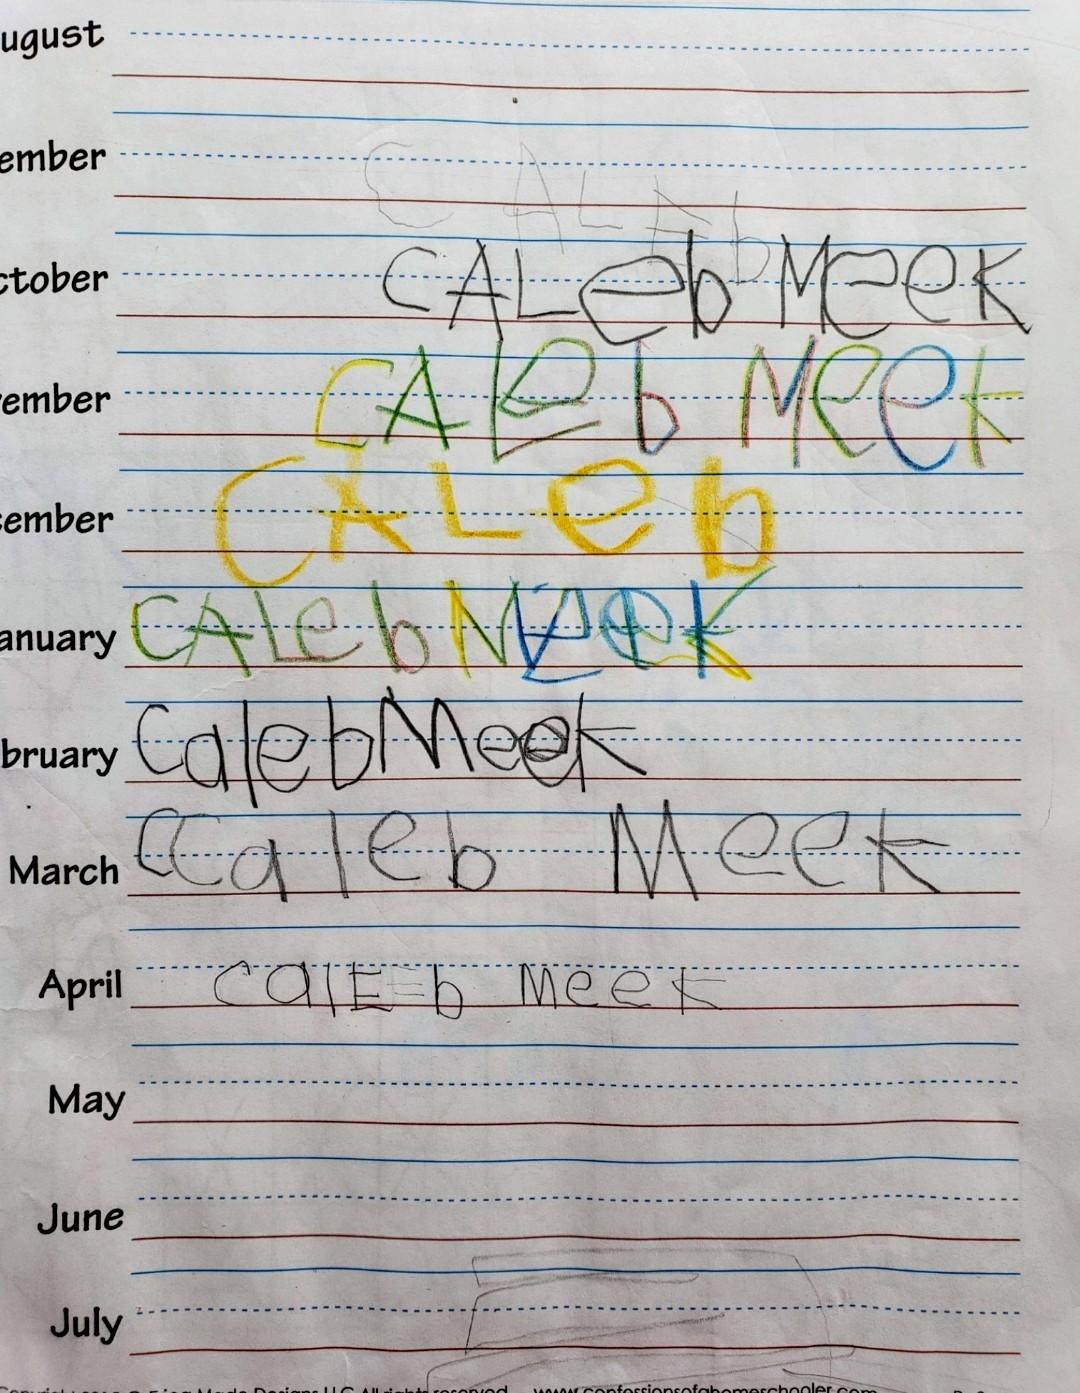 ugust
ember CALEb
ctober CALeb Meek
vember CALeb Meek
cember CALeb
anuary CALeb Meek
bruary Caleb Meek
March CCaleb Meek
April CalEb Meek
May
June
July
All rights reserved. www.confessionsofahomeschooler.com